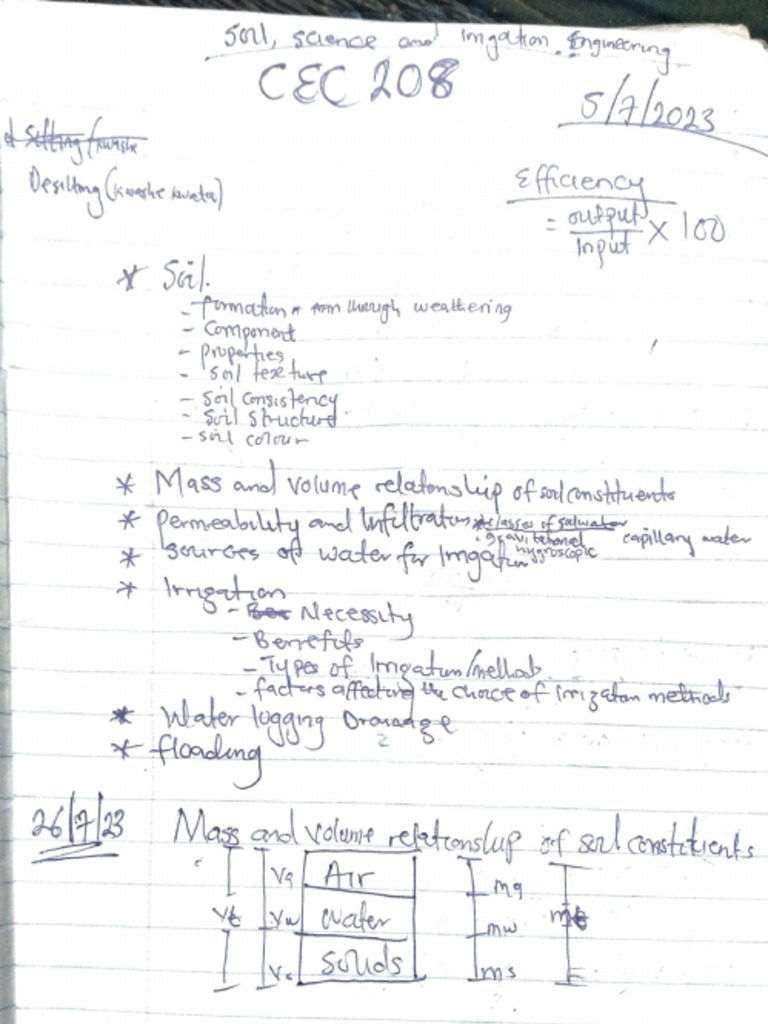 Soil, science and irrigation Engineering
CEC 208
5/7/2023
Silting/kwashe
Desilting (kwashe kwata)
Efficiency
= output/input × 100
* Soil.
- formation * form through weathering
- Component
- properties
- soil texture
- soil consistency
- soil structure
- soil colour
* Mass and volume relationship of soil constituents
* permeability and Infiltration * classes of soil water
. gravitational capillary water
hygroscopic
* sources of water for Irrigation
* Irrigation
- Necessity
- Benefits
- Types of Irrigation/methods
- factors affecting the choice of irrigation methods
* Water logging Drainage
* flooding
26/7/23 Mass and volume relationship of soil constituents
Va Air ma
Vt Vw water mw mt
Vs Solids ms